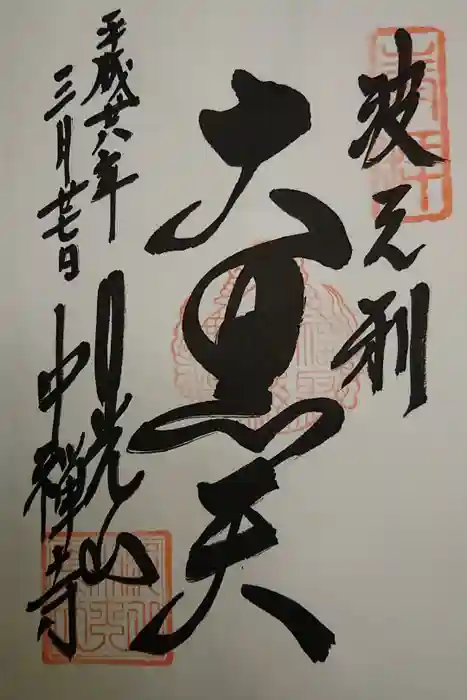 波之利
大黒天
平成廿八年
三月廿七日
日光山
中禅寺